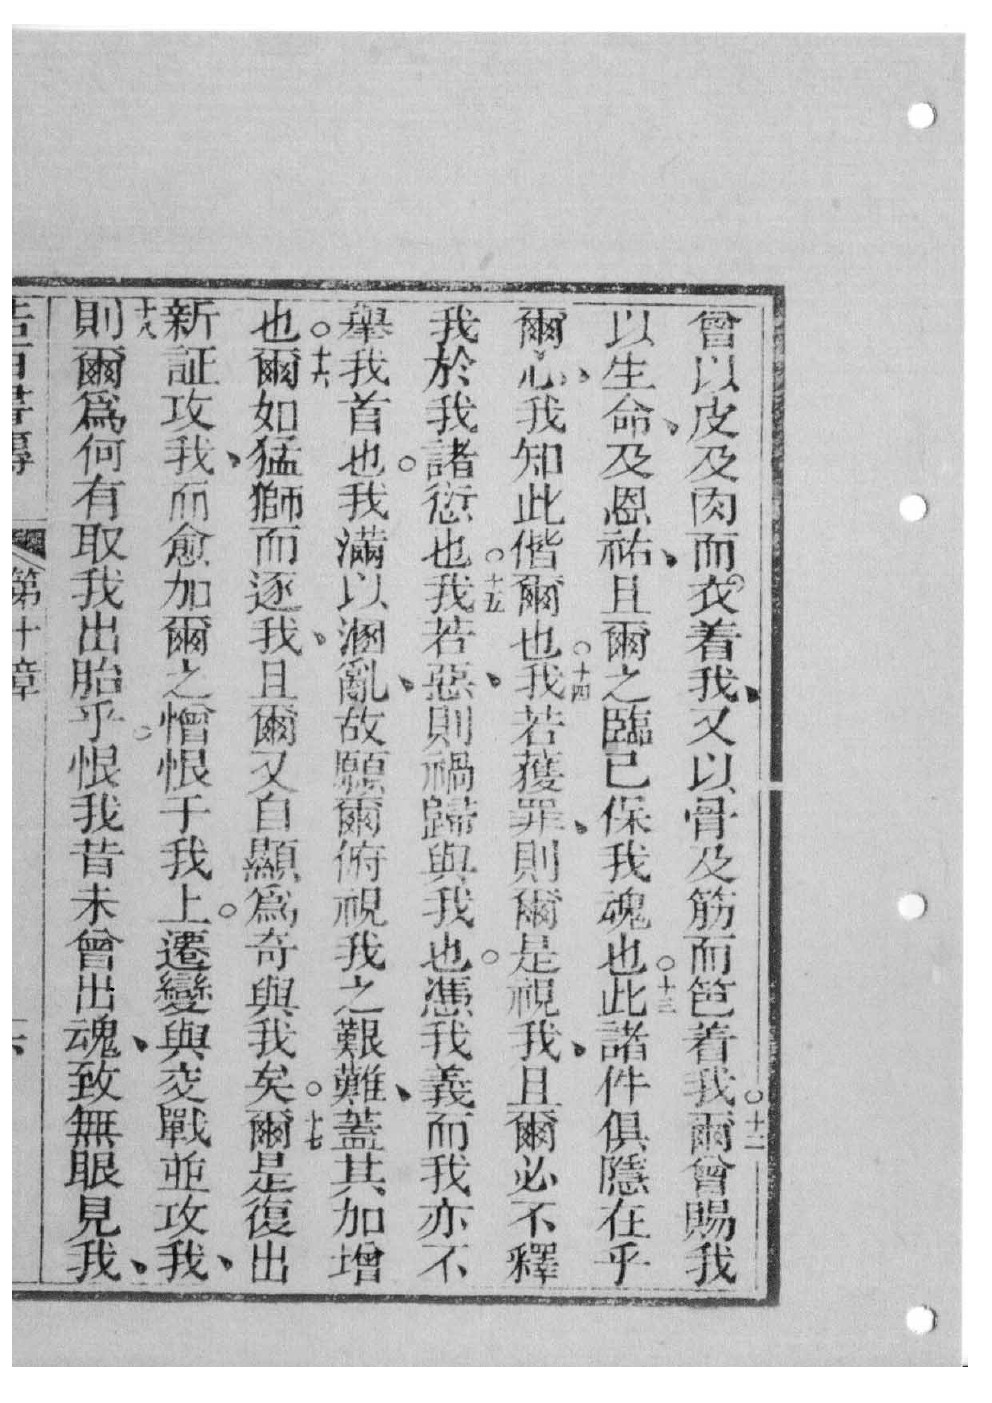 曾以皮及肉而衣着我、又以骨及筋而笆着我。十二爾曾賜我
以生命、及恩祐、且爾之臨已保我魂也。十三此諸件俱隱在乎
爾心、我知此偕爾也。十四我若獲罪、則爾是視我、且爾必不釋
我於我諸愆也。十五我若惡、則禍歸與我也。憑我義而我亦不
舉我首也。我滿以溷亂、故願爾俯視我之艱難、蓋其加增
也。十六爾如猛獅而逐我、且爾又自顯爲奇與我矣。十七爾是復出
新証攻我、而愈加爾之憎恨于我上。遷變與交戰並攻我、
十八則爾爲何有取我出胎乎。恨我昔未曾出魂、致無眼見我、
第十章